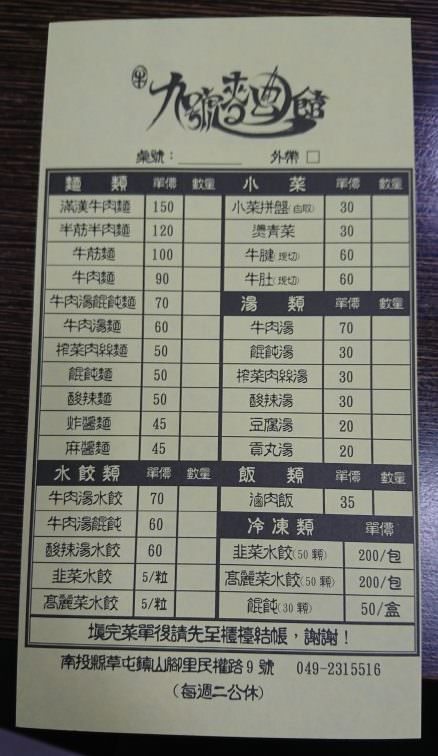 牛 九號麵館
桌號： 外帶 □
麵 類 單價 數量
滿漢牛肉麵 150
半筋半肉麵 120
牛筋麵 100
牛肉麵 90
牛肉湯餛飩麵 70
牛肉湯麵 60
榨菜肉絲麵 50
餛飩麵 50
酸辣麵 50
炸醬麵 45
麻醬麵 45
水餃類 單價 數量
牛肉湯水餃 70
牛肉湯餛飩 60
酸辣湯水餃 60
韭菜水餃 5/粒
高麗菜水餃 5/粒
小 菜 單價 數量
小菜拼盤(自取) 30
燙青菜 30
牛腱(現切) 60
牛肚(現切) 60
湯 類 單價 數量
牛肉湯 70
餛飩湯 30
榨菜肉絲湯 30
酸辣湯 30
豆腐湯 20
貢丸湯 20
飯 類 單價 數量
滷肉飯 35
冷凍類 單價
韭菜水餃(50 顆) 200/包
高麗菜水餃(50 顆) 200/包
餛飩(30 顆) 50/盒
填完菜單後請先至櫃檯結帳，謝謝！
南投縣草屯鎮山腳里民權路 9 號 049-2315516
(每週二公休)